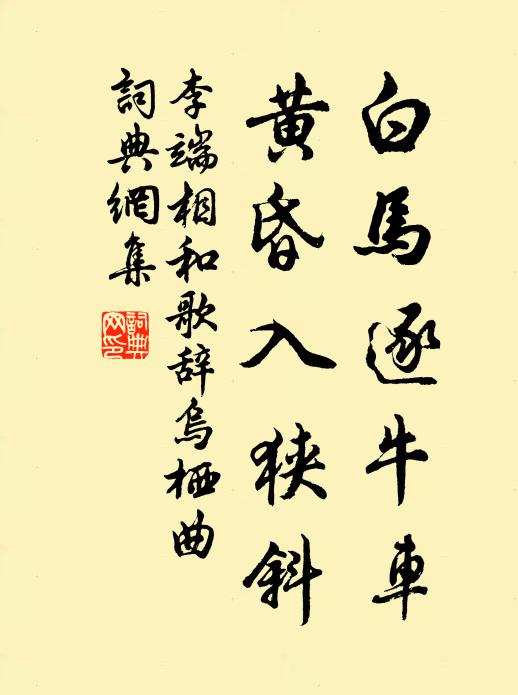 白馬逐牛車
黄昏入狹斜
李端相和歌辞烏栖曲
詞典網集
詞典
网印